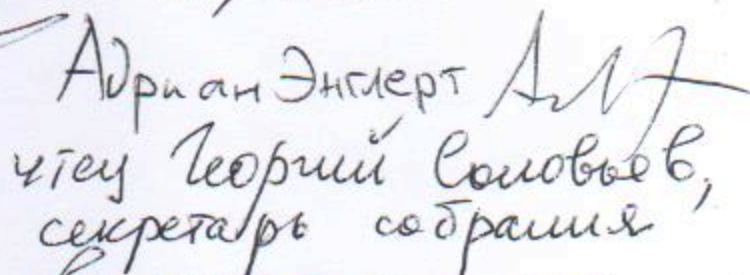 Адриан Энглерт
чтец Георгий Соловьев,
секретарь собрания